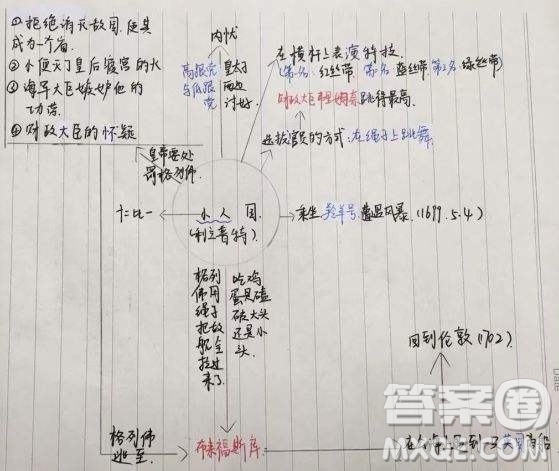 ① 拒绝消灭敌国,使其
成为一个省.
② 小便灭了皇后寝宫的火
③ 海军大臣嫉妒他的
功劳.
④ 财政大臣的怀疑
皇帝要处
罚格列佛.
内忧
高跟党
与低跟
党
皇太子
两边
讨好.
在横杆上表演特技.
财政大臣 跳得最高.
选拔官员的方式:在绳子上跳舞.
十二比一
小人国.
(利立普特).
乘坐羚羊号遭遇风暴.(1699.5.4)
格列
佛用
绳子
把敌
舰全
拉过
来了.
吃鸡
蛋是磕
破大头
还是小
头.
回到伦敦(1702).
格列佛
逃至.
布来福斯库
答案圈